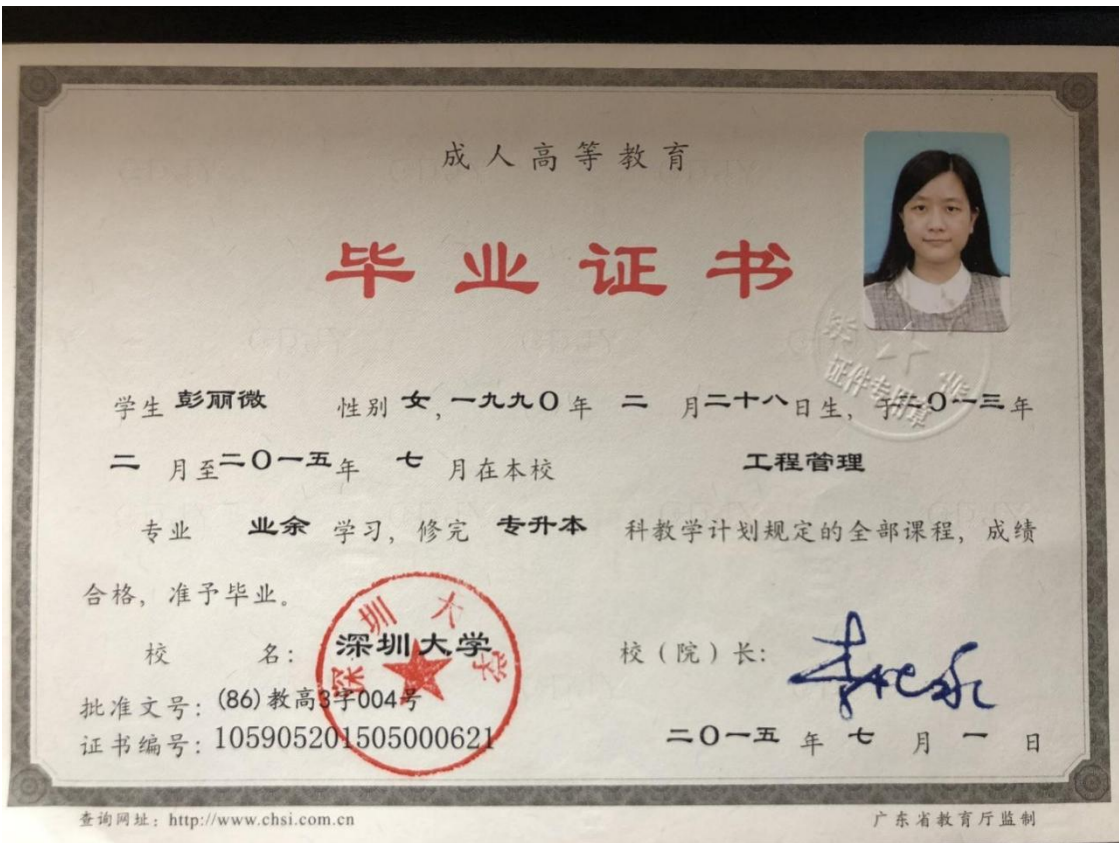 成人高等教育
毕业证书
学生 彭丽微 性别 女,一九九〇年 二 月二十八日生,于二〇一三年
二 月至二〇一五年 七 月在本校 工程管理
专业 业余 学习,修完 专升本 科教学计划规定的全部课程,成绩
合格,准予毕业。
校 名: 深圳大学 校(院)长:
深圳大学
批准文号:(86)教高3字004号
证书编号:105905201505000621
二〇一五 年 七 月 一 日
证件专用章
查询网址:http://www.chsi.com.cn 广东省教育厅监制